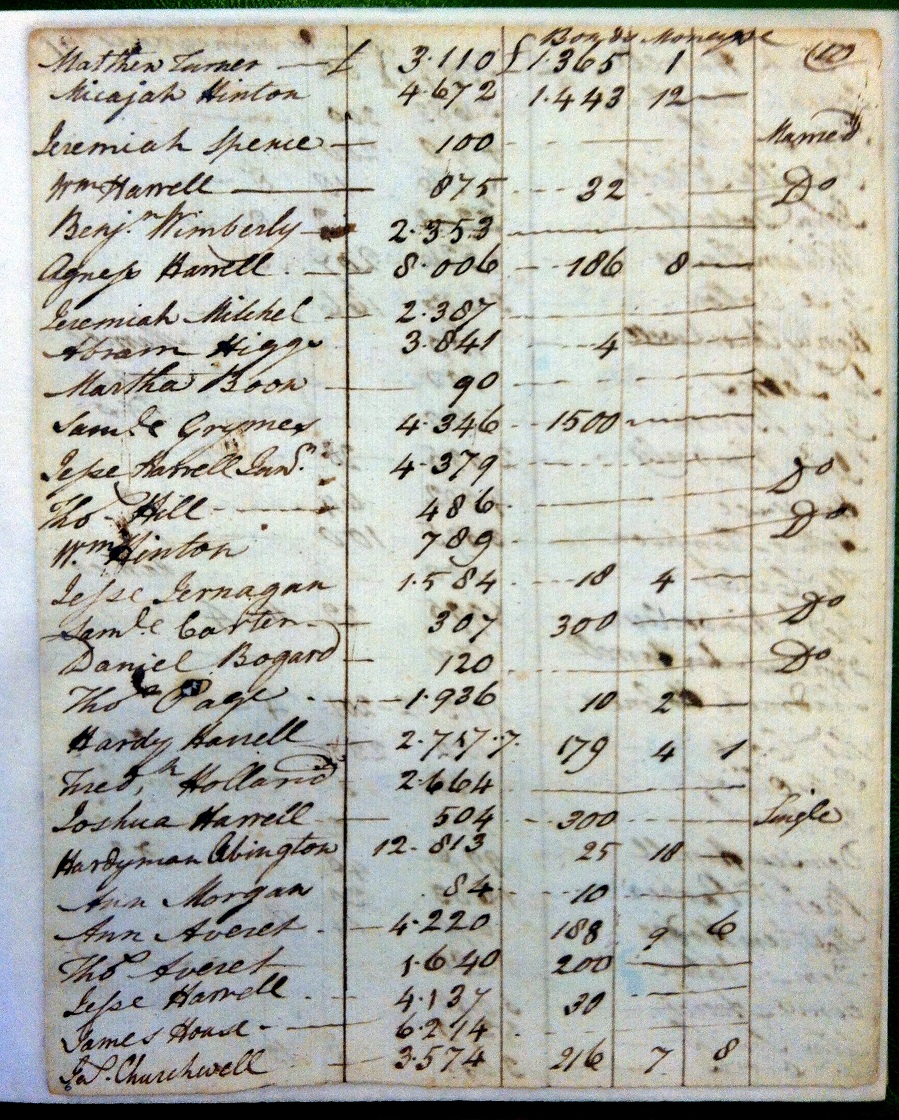 Bonds Money &c (10)
Matthew Turner — £ 3.110 £1.365 1
Micajah Hinton 4.672 1.443 12 —
Jeremiah Spence — 100 Married
Wm Harrell — 875 32 Do
Benjn Wimberly — 2.353
Agness Harrell — 8.006 186 8 —
Jeremiah Mitchel 2.387
Abram Higgs 3.841 4
Martha Boon — 90
Samle Grymes 4.346 1500
Jesse Harrell Junr 4.379 Do
Tho Hill — 486 Do
Wm Hinton 789
Jesse Jernagan 1.584 18 4 —
Samle Carter — 307 300 Do
Daniel Bogard — 120 Do
Thos Page — 1.936 10 2 —
Hardy Harrell 2.757.7 179 4 1
Fredk Holland 2.664
Joshua Harrell — 504 300 Single
Hardyman Abington 12.813 25 18 —
Ann Morgan 84 10
Ann Averet — 4.220 188 9 6
Thos Averet 1.640 200
Jesse Harrell 4.137 30
James House — 6.214
Jas. Churchwell 3.574 216 7 8